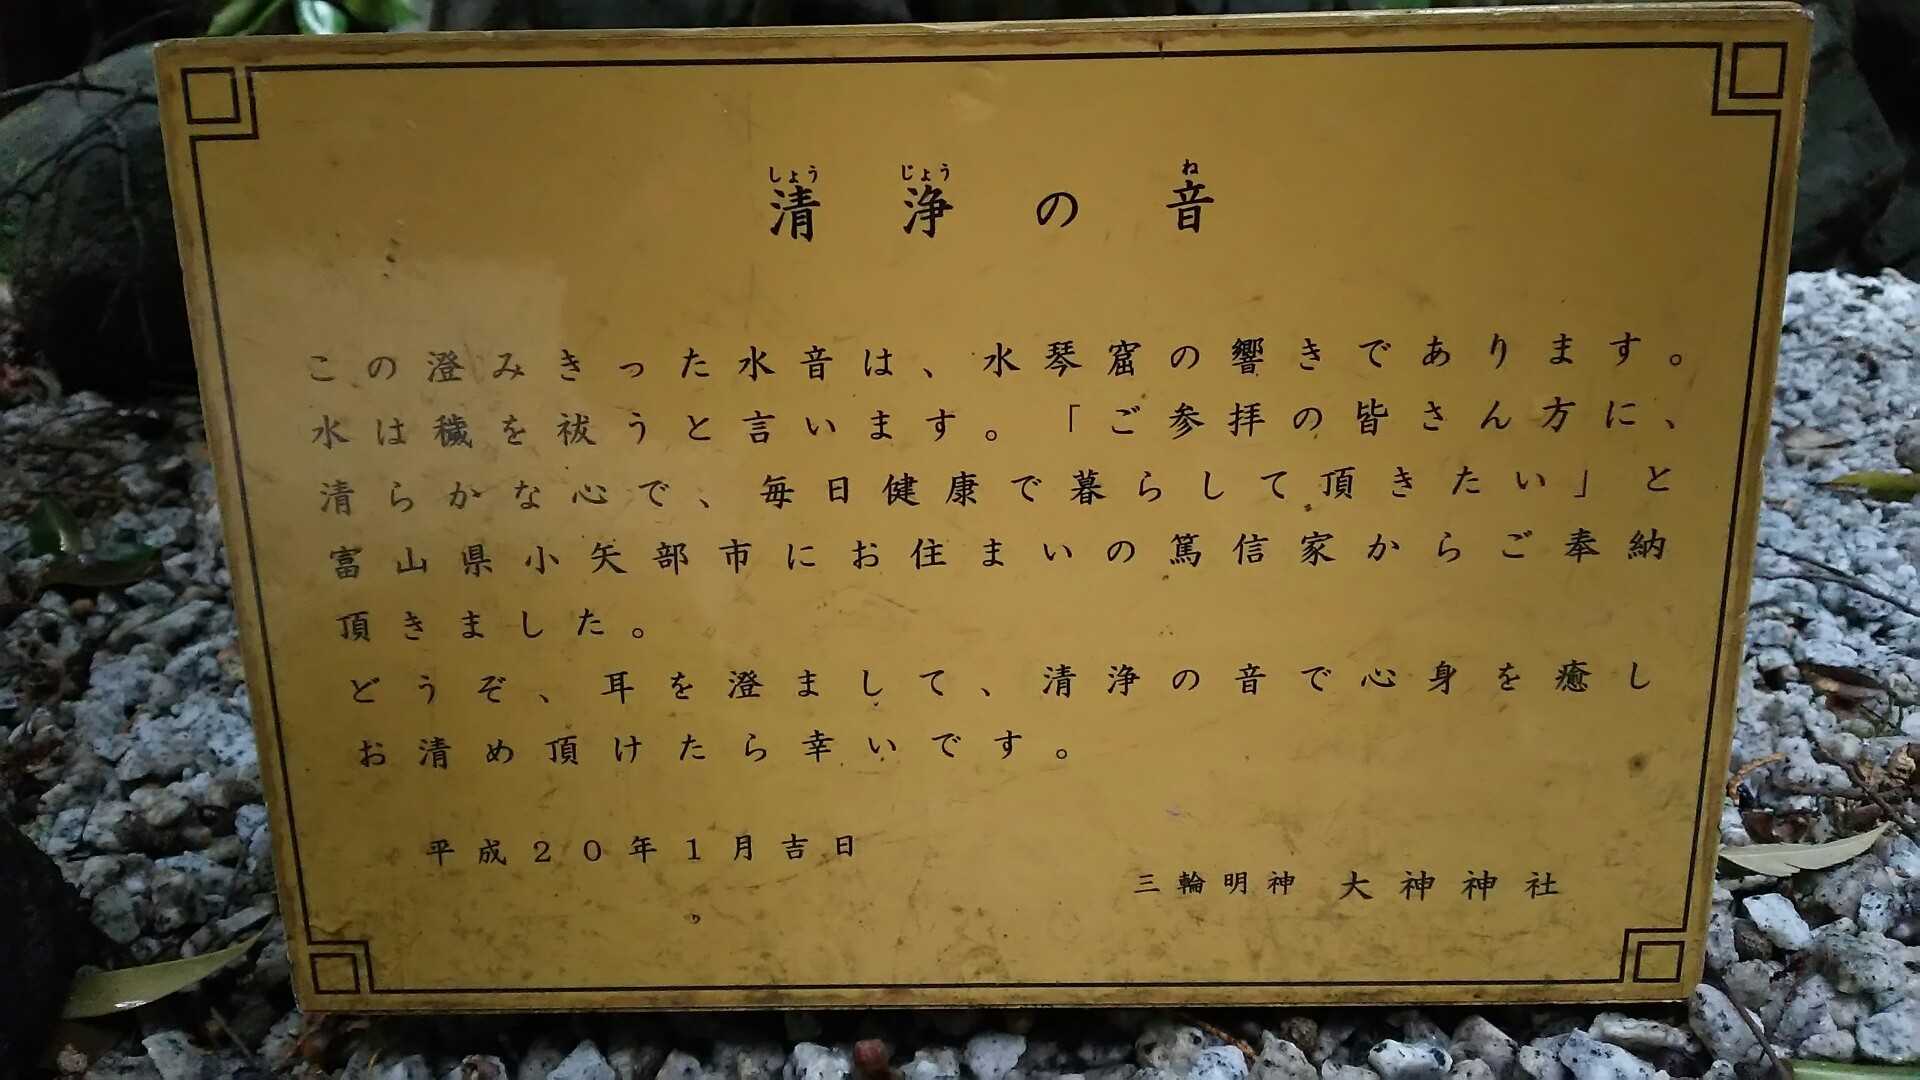 清浄の音
しょう じょう ね
この澄みきった水音は、水琴窟の響きであります。
水は穢を祓うと言います。「ご参拝の皆さん方に、
清らかな心で、毎日健康で暮らして頂きたい」と
富山県小矢部市にお住まいの篤信家からご奉納
頂きました。
どうぞ、耳を澄まして、清浄の音で心身を癒し
お清め頂けたら幸いです。
平成20年1月吉日
三輪明神 大神神社